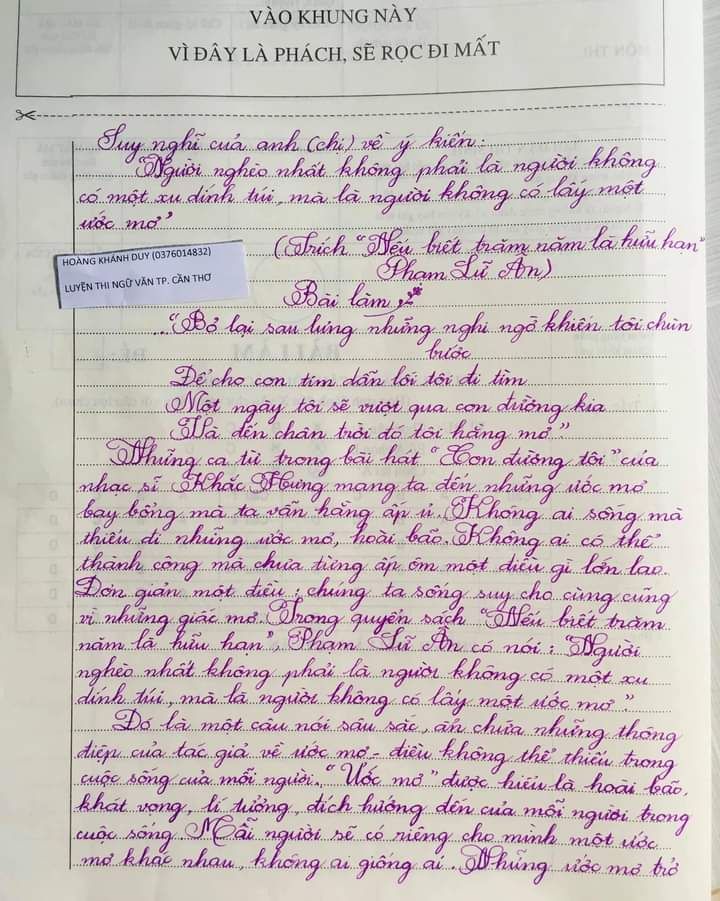 VÀO KHUNG NÀY
VÌ ĐÂY LÀ PHÁCH, SẼ RỌC ĐI MẤT
Suy nghĩ của anh (chị) về ý kiến:
"Người nghèo nhất không phải là người không
có một xu dính túi, mà là người không có lấy một
ước mơ"
(Trích "Nếu biết trăm năm là hữu hạn"
HOÀNG KHÁNH DUY (0376014832)
Phạm Lữ Ân)
LUYỆN THI NGỮ VĂN TP. CẦN THƠ
Bài làm
..."Bỏ lại sau lưng những nghi ngờ khiến tôi chùn
bước
Để cho con tim dẫn lối tôi đi tìm
Một ngày tôi sẽ vượt qua con đường kia
Và đến chân trời đó tôi hằng mơ."
Những ca từ trong bài hát "Con đường tôi" của
nhạc sĩ Khắc Hưng mang ta đến những ước mơ
bay bổng mà ta vẫn hằng ấp ủ. Không ai sống mà
thiếu đi những ước mơ, hoài bão. Không ai có thể
thành công mà chưa từng ấp ôm một điều gì lớn lao.
Đơn giản một điều: chúng ta sống suy cho cùng cũng
vì những giấc mơ. Trong quyển sách "Nếu biết trăm
năm là hữu hạn", Phạm Lữ Ân có nói: "Người
nghèo nhất không phải là người không có một xu
dính túi, mà là người không có lấy một ước mơ."
Đó là một câu nói sâu sắc, ẩn chứa những thông
điệp của tác giả về ước mơ - điều không thể thiếu trong
cuộc sống của mỗi người. "Ước mơ" được hiểu là hoài bão,
khát vọng, lí tưởng, đích hướng đến của mỗi người trong
cuộc sống. Mỗi người sẽ có riêng cho mình một ước
mơ khác nhau, không ai giống ai. Những ước mơ trở